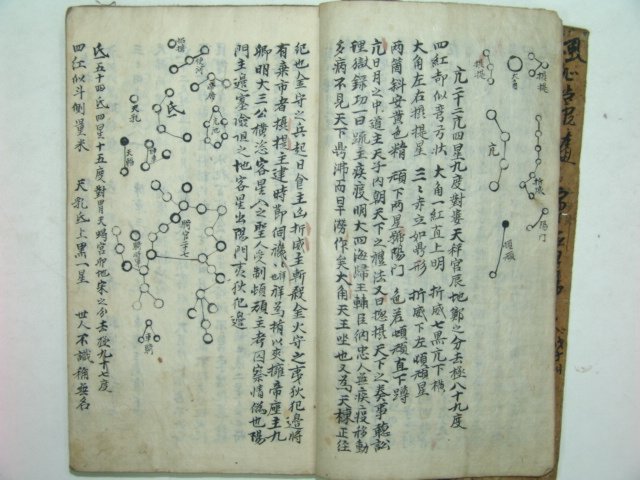 攝提
大角
攝提
亢
折威
陽門
頓頑
亢二十二亢四星九度對婁天秤宮辰地鄭之分去極八十九度
四紅却似彎弓状 大角一紅直上明 折威七黑亢下橫
大角左右攝提星 三三赤立如鼎形 折威下左頓頑星
兩箇斜安黃色精 頑下兩星號陽門 色若頓頑直下蹲
亢日月之中道主天子內朝天下之禮法又曰摠攝天下之奏事聽訟
理獄錄功一曰疏主疾疫明大四海歸王輔臣納忠人無疾疫移動
多病不見天下鼎沸而旱澇作矣大角天王坐也又為天棟正径
紀也金守之兵起日食主凶折威主斬殺金火守之夷狄犯邊將
有棄市者攝提主建時節伺禨祥為楯以夾擁帝座主九
卿明大三公橫恣客星入之聖人受制頓頑主考囚察情僞也陽
門主邊塞險阻之地客星出陽門夷狄犯邊
招搖
梗河
帝席
亢池
氐
天乳
天輻
騎官二十七
車騎
氐五十四氐四星十五度對胃天蝎宮卯地宋之分去極九十七度
四紅似斗側量米 天乳氐上黑一星 世人不識稱無名